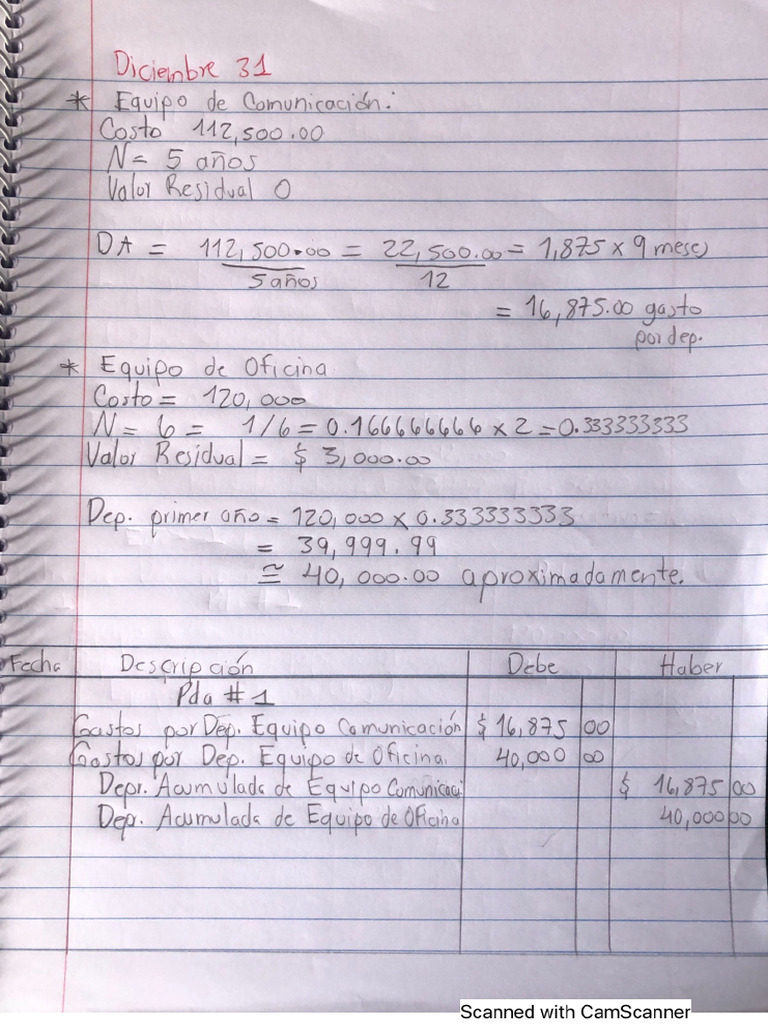 Diciembre 31
* Equipo de Comunicación:
Costo 112,500.00
N= 5 años
Valor Residual 0
DA = 112,500.00 = 22,500.00 = 1,875 x 9 meses
5 años 12
= 16,875.00 gasto
por dep.
* Equipo de Oficina
Costo = 120,000
N = 6 = 1/6 = 0.166666666 x 2 = 0.333333333
Valor Residual = $ 3,000.00
Dep. primer año = 120,000 x 0.333333333
= 39,999.99
≅ 40,000.00 aproximadamente.
Fecha Descripción Debe Haber
Pda # 1
Gastos por Dep. Equipo Comunicación $ 16,875 00
Gastos por Dep. Equipo de Oficina. 40,000 00
Depr. Acumulada de Equipo Comunicaci $ 16,875 00
Depr. Acumulada de Equipo de Oficina 40,000 00
Scanned with CamScanner